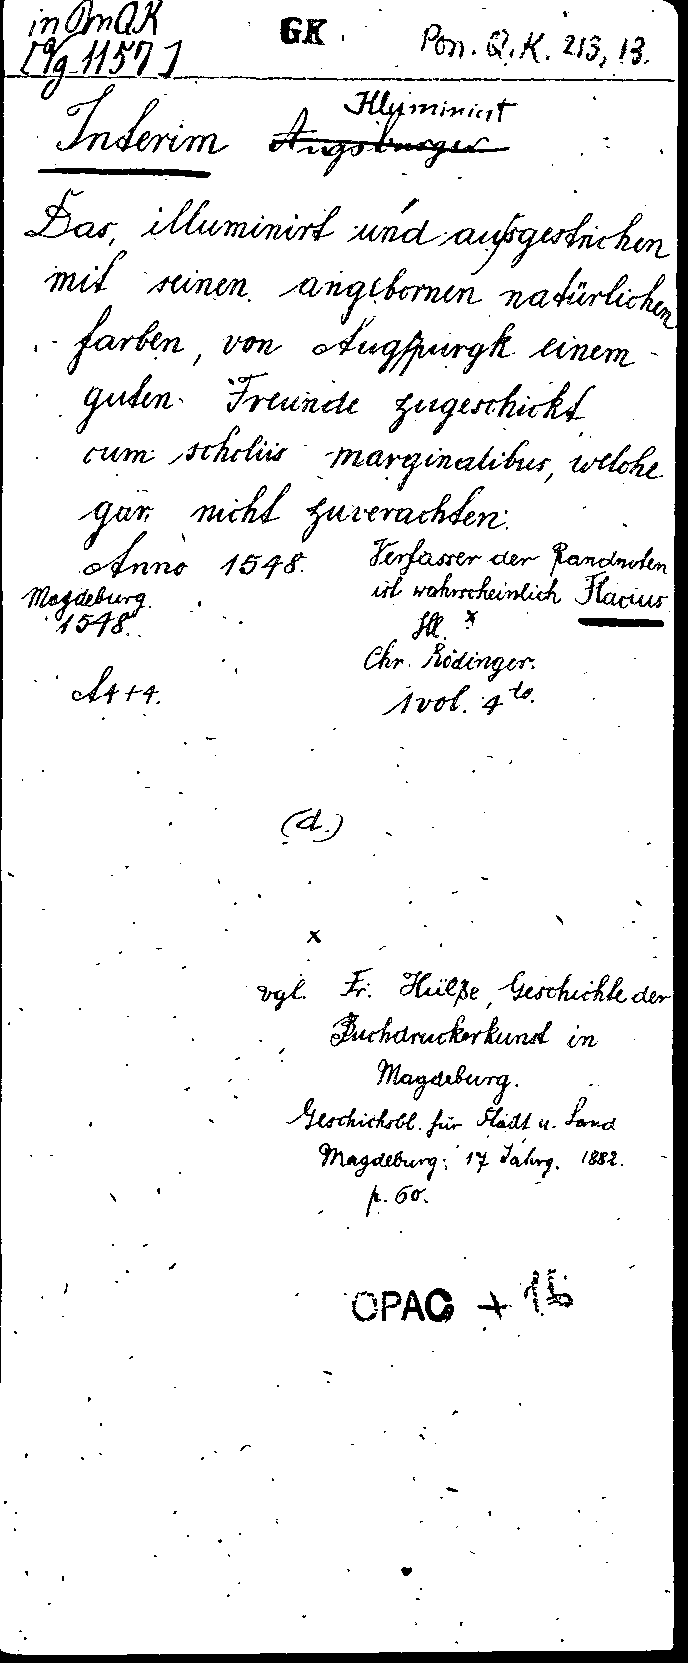 in PmQK
[Vg 1157]
GK.
Pon. Q. K. 213, 13.
Illuminirt
Interim Augsburger
Das, illuminirt und ausgestrichen
mit seinen angebornen natürlichen
farben, von Augspurgk einem
guten Freunde zugeschickt
cum scholiis marginalibus, welche
gar nicht zuverachten.
Anno 1548.
Verfasser der Randnoten
ist wahrscheinlich Flacius
Magdeburg.
1548.
Ill. x
Chr. Rödinger.
A4+4.
1 vol. 4to.
(d.)
x
vgl. Fr. Hülße, Geschichte der
Buchdruckerkunst in
Magdeburg.
Geschichsbl. für Stadt u. Land
Magdeburg: 17 Jahrg. 1882.
p. 60.
OPAC + 16